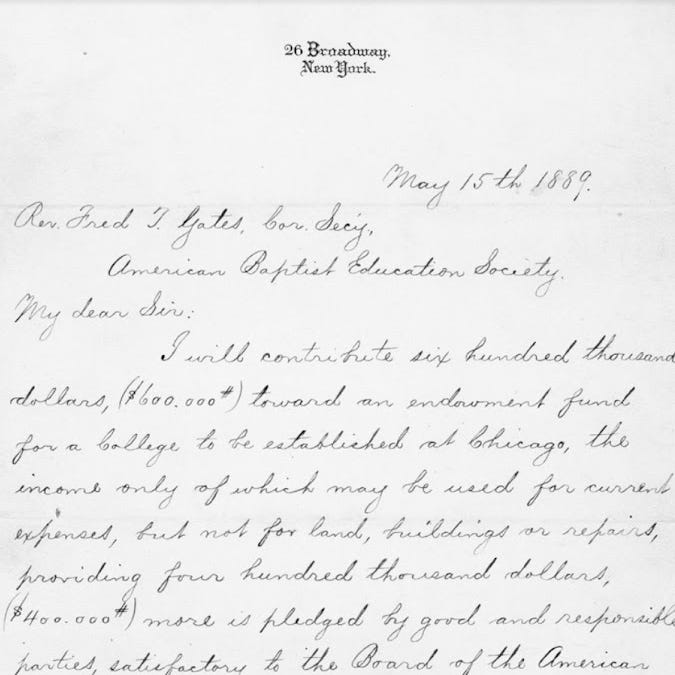 26 Broadway,
New York.
May 15th 1889.
Rev. Fred T. Gates, Cor. Sec'y,
American Baptist Education Society.
My dear Sir:
I will contribute six hundred thousand
dollars, ($600.000#) toward an endowment fund
for a College to be established at Chicago, the
income only of which may be used for current
expenses, but not for land, buildings or repairs,
providing four hundred thousand dollars,
($400.000#) more is pledged by good and responsible
parties, satisfactory to the Board of the American